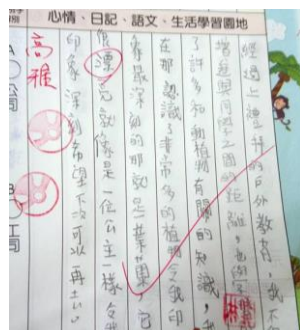 心情、日記、語文、生活學習園地
經過上禮拜的戶外教育，我不
增進與同學之間的距離，也學
了許多和動植物有關的知識，
在那認識了非常多的植物令我印
象最深刻的那就是葉
漂亮就像是一位公主一樣令
印象深刻希望下次可以再去
高雅